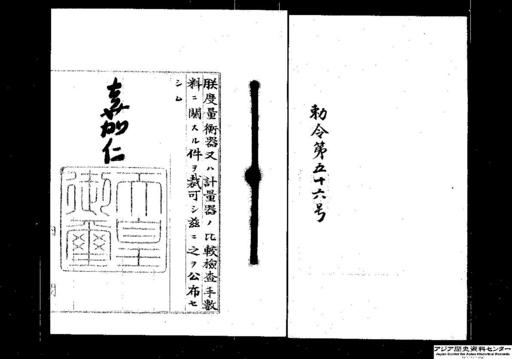 勅令第五十六号
朕度量衡器又ハ計量器ノ比較検査手数
料ニ関スル件ヲ裁可シ茲ニ之ヲ公布セ
シム
嘉仁
天皇
御璽
アジア歴史資料センター
Japan Center for Asian Historical Records